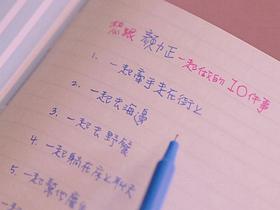 想跟 顏力正一起做的10件事
1. 一起牽手走在街上
2. 一起去海邊
3. 一起去野餐
4. 一起躺在床上聊天
5. 一起幫他慶生